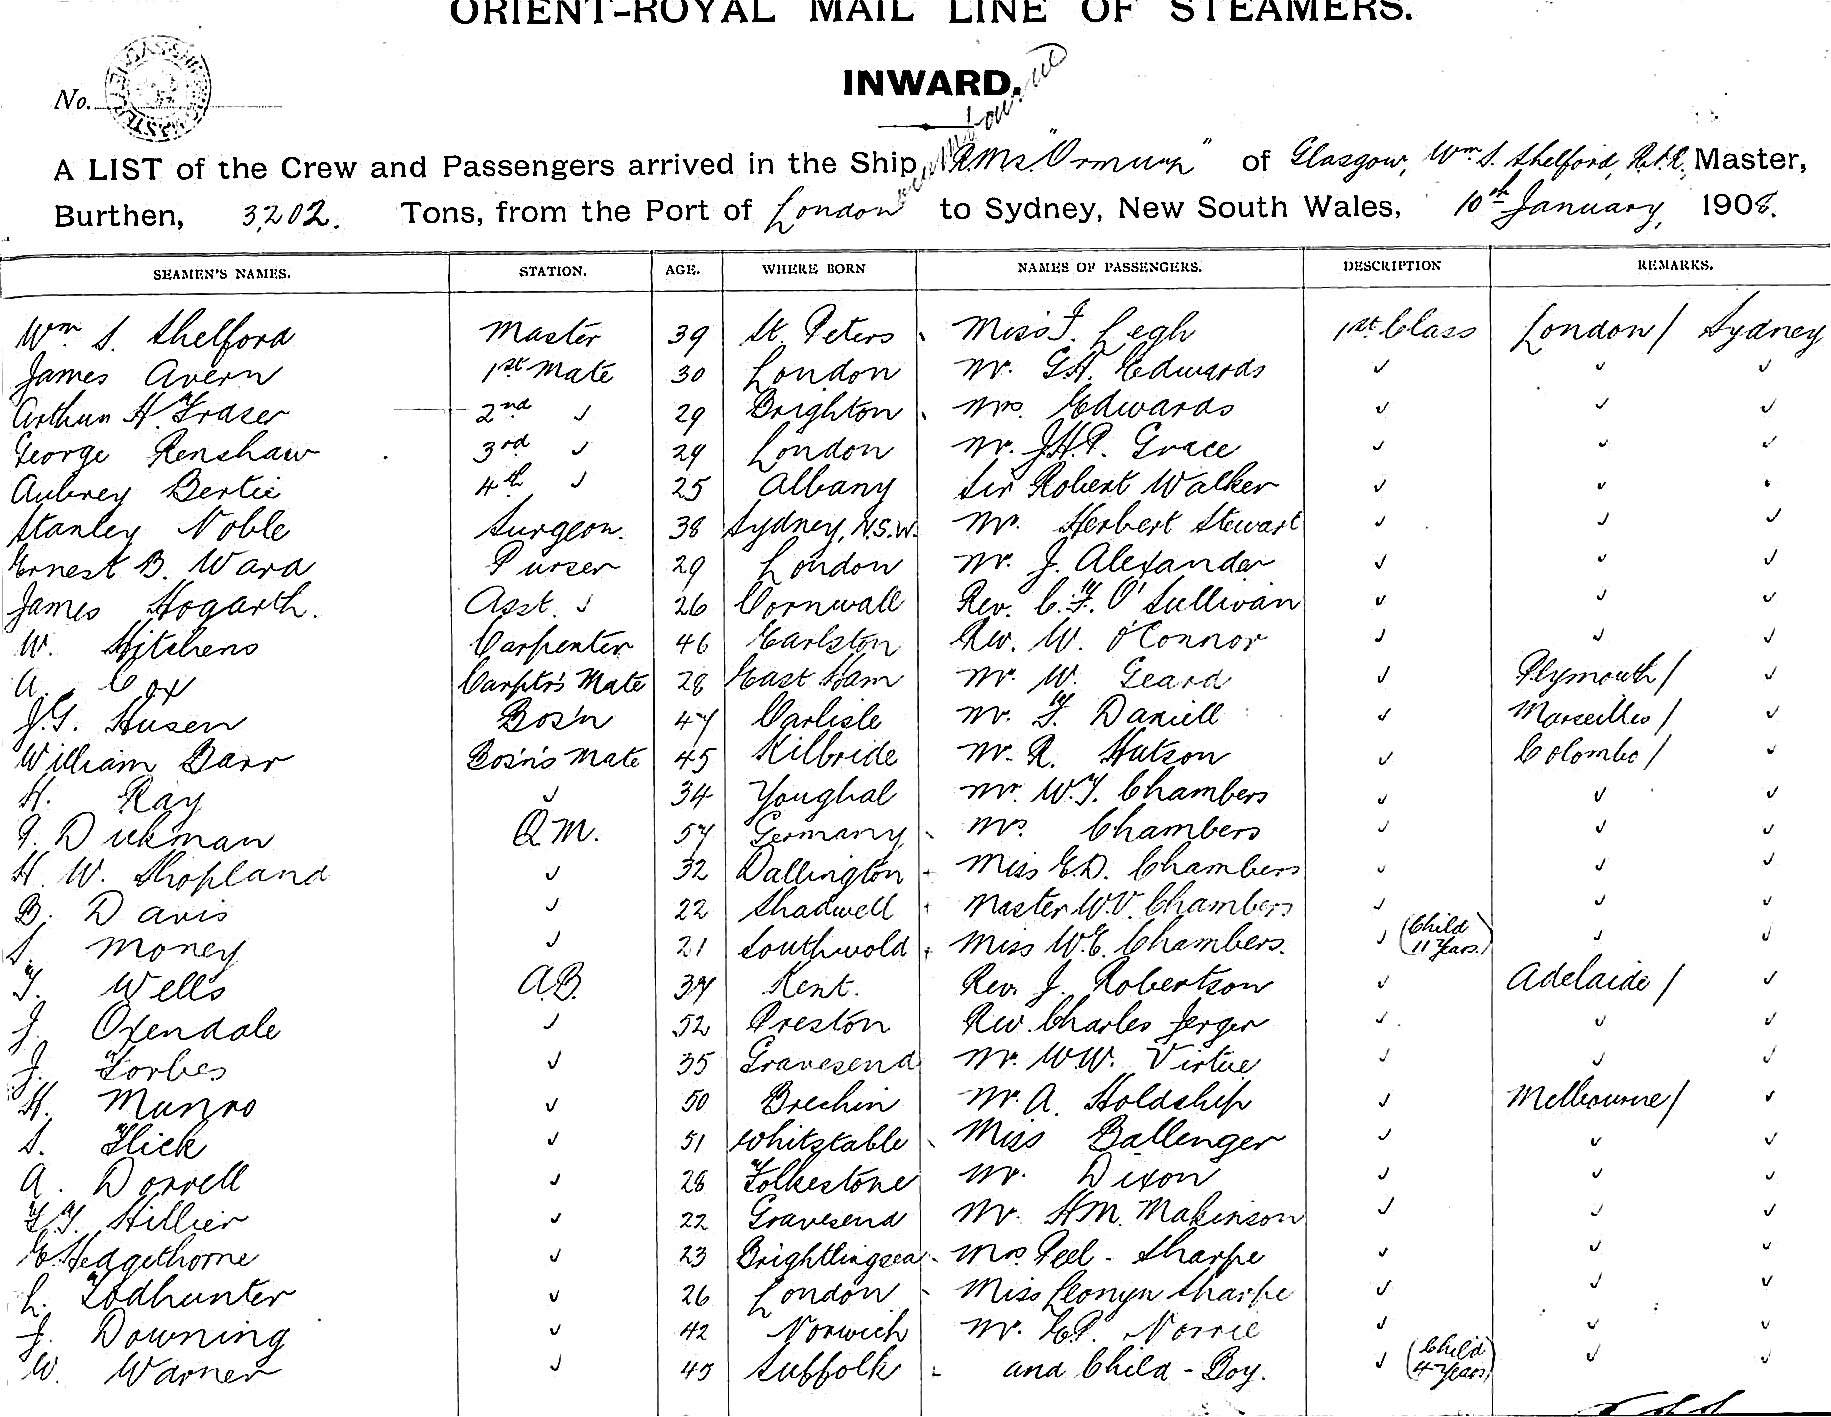 ORIENT-ROYAL MAIL LINE OF STEAMERS.
INWARD.
No.
A LIST of the Crew and Passengers arrived in the Ship R.M.S. "Ormuz" of Glasgow, Wm. S. Shelford, R.N.R., Master,
Burthen, 3,202. Tons, from the Port of London to Sydney, New South Wales, 10th January, 1908.
SEAMEN'S NAMES. STATION. AGE. WHERE BORN NAMES OF PASSENGERS. DESCRIPTION REMARKS.
Wm S. Shelford Master 39 St. Peters Miss F. Legh 1st Class London / Sydney
James Avern 1st Mate 30 London Mr. G.H. Edwards ✓ ✓ ✓
Arthur H. Fraser 2nd ✓ 29 Brighton Mrs. Edwards ✓ ✓ ✓
George Renshaw 3rd ✓ 29 London Mr. J.H.P. Grace ✓ ✓ ✓
Aubrey Bertie 4th ✓ 25 Albany Sir Robert Walker ✓ ✓ ✓
Stanley Noble Surgeon. 38 Sydney, N.S.W. Mr. Herbert Stewart ✓ ✓ ✓
Ernest B. Ward Purser 29 London Mr. J. Alexander ✓ ✓ ✓
James Hogarth. Asst. ✓ 26 Cornwall Rev. C.F. O'Sullivan ✓ ✓ ✓
W. Hitchens Carpenter 46 Earlston Rev. W. O'Connor ✓ ✓ ✓
A. Cox Carptr's Mate 28 East Ham Mr. W. Geard ✓ Plymouth / ✓
J.G. Husen Bos'n 47 Carlisle Mr. F. Daniell ✓ Marseilles / ✓
William Barr Bos'n's Mate 45 Kilbride Mr. R. Hutson ✓ Colombo / ✓
H. Ray ✓ 34 Youghal Mr. W.T. Chambers ✓ ✓ ✓
Dukman Q.M. 57 Germany Mrs. Chambers ✓ ✓ ✓
H. W. Shopland ✓ 32 Dallington Miss E.D. Chambers ✓ ✓ ✓
B. Davis ✓ 22 Shadwell Master W.V. Chambers ✓ ✓ ✓
S. Money ✓ 21 Southwold Miss W.E. Chambers. ✓ (Child 11 Years.) ✓ ✓
T. Wells A.B. 37 Kent. Rev. J. Robertson ✓ Adelaide / ✓
J. Oxendale ✓ 52 Preston Rev. Charles Jerger ✓ ✓ ✓
J. Forbes ✓ 35 Gravesend Mr. W.W. Virtue ✓ ✓ ✓
H. Munro ✓ 50 Brechin Mr. A. Holdship ✓ Melbourne / ✓
S. Flick ✓ 51 Whitstable Miss Ballenger ✓ ✓ ✓
A. Dorrell ✓ 28 Folkestone Mr. Dixon ✓ ✓ ✓
F.T. Hillier ✓ 22 Gravesend Mr. H.M. Makinson ✓ ✓ ✓
E. Hedgethorne ✓ 23 Brightlingsea Mrs. Peel-Sharpe ✓ ✓ ✓
L. Todhunter ✓ 26 London Miss Sharpe ✓ ✓ ✓
J. Downing ✓ 42 Norwich Mr. E.P. Norrie ✓ ✓ ✓
W. Warner ✓ 45 Suffolk and Child - Boy. ✓ (Child 4 Years) ✓ ✓